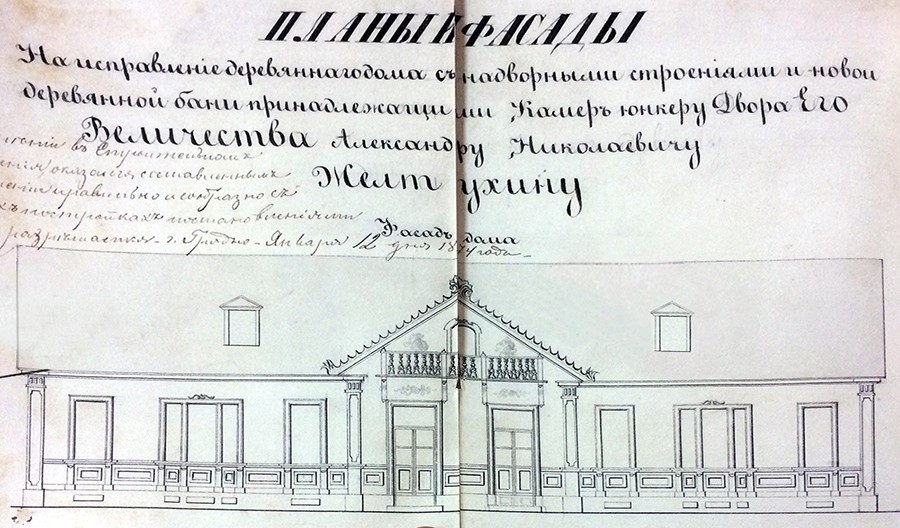 ПЛАНЫ И ФАСАДЫ
На исправленіе деревяннаго дома съ надворными строеніями и новой
деревянной бани принадлежащими Камеръ юнкеру Двора Его
Величества Александру Николаевичу
Желтухину
въ Строительномъ
оказался составленнымъ
правильно и сообразно съ
постройкахъ постановленіями
разрѣшается. г. Гродно. Января 12 дня 1874 года.
Фасадъ дома